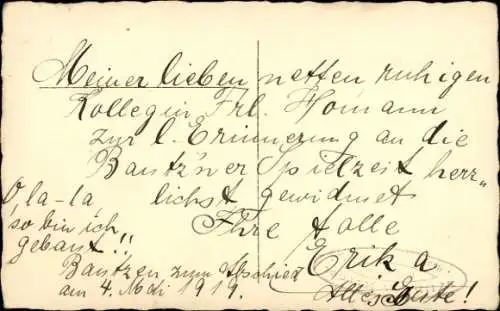 Meiner lieben netten ruhigen
Kollegin Frl. Homann
zur l. Erinnerung an die
Bautz'ner Spielzeit herz-
lichst gewidmet
Ihre tolle
Erika.
O, la-la
so bin ich
gebaut!!
Bautzen zum Abschied
am 4. Mai 1919.
Alles Gute!